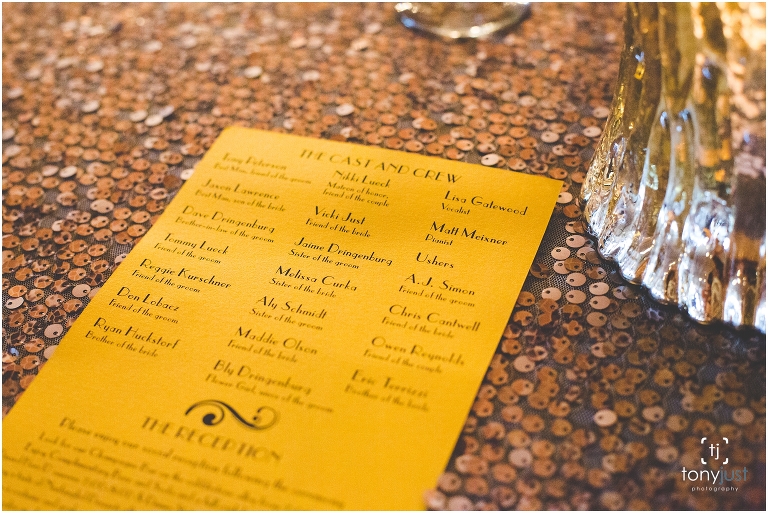 THE CAST AND CREW
Tony Peterson
Best Man, friend of the groom
Jaxon Lawrence
Best Man, son of the bride
Dave Dringenburg
Brother-in-law of the groom
Tommy Lueck
Friend of the groom
Reggie Kurschner
Friend of the groom
Don Lobacz
Friend of the groom
Ryan Huckstorf
Brother of the bride
Nikki Lueck
Matron of honor,
friend of the couple
Vicki Just
Friend of the bride
Jaime Dringenburg
Sister of the groom
Melissa Curka
Sister of the bride
Aly Schmidt
Sister of the groom
Maddie Olson
Friend of the bride
Bly Dringenburg
Flower Girl, niece of the groom
Lisa Gatewood
Vocalist
Matt Meixner
Pianist
Ushers
A.J. Simon
Friend of the groom
Chris Cantwell
Friend of the bride
Owen Reynolds
Friend of the couple
Eric
Brother of the bride
THE RECEPTION
Please enjoy our
tj
tonyjust
photography